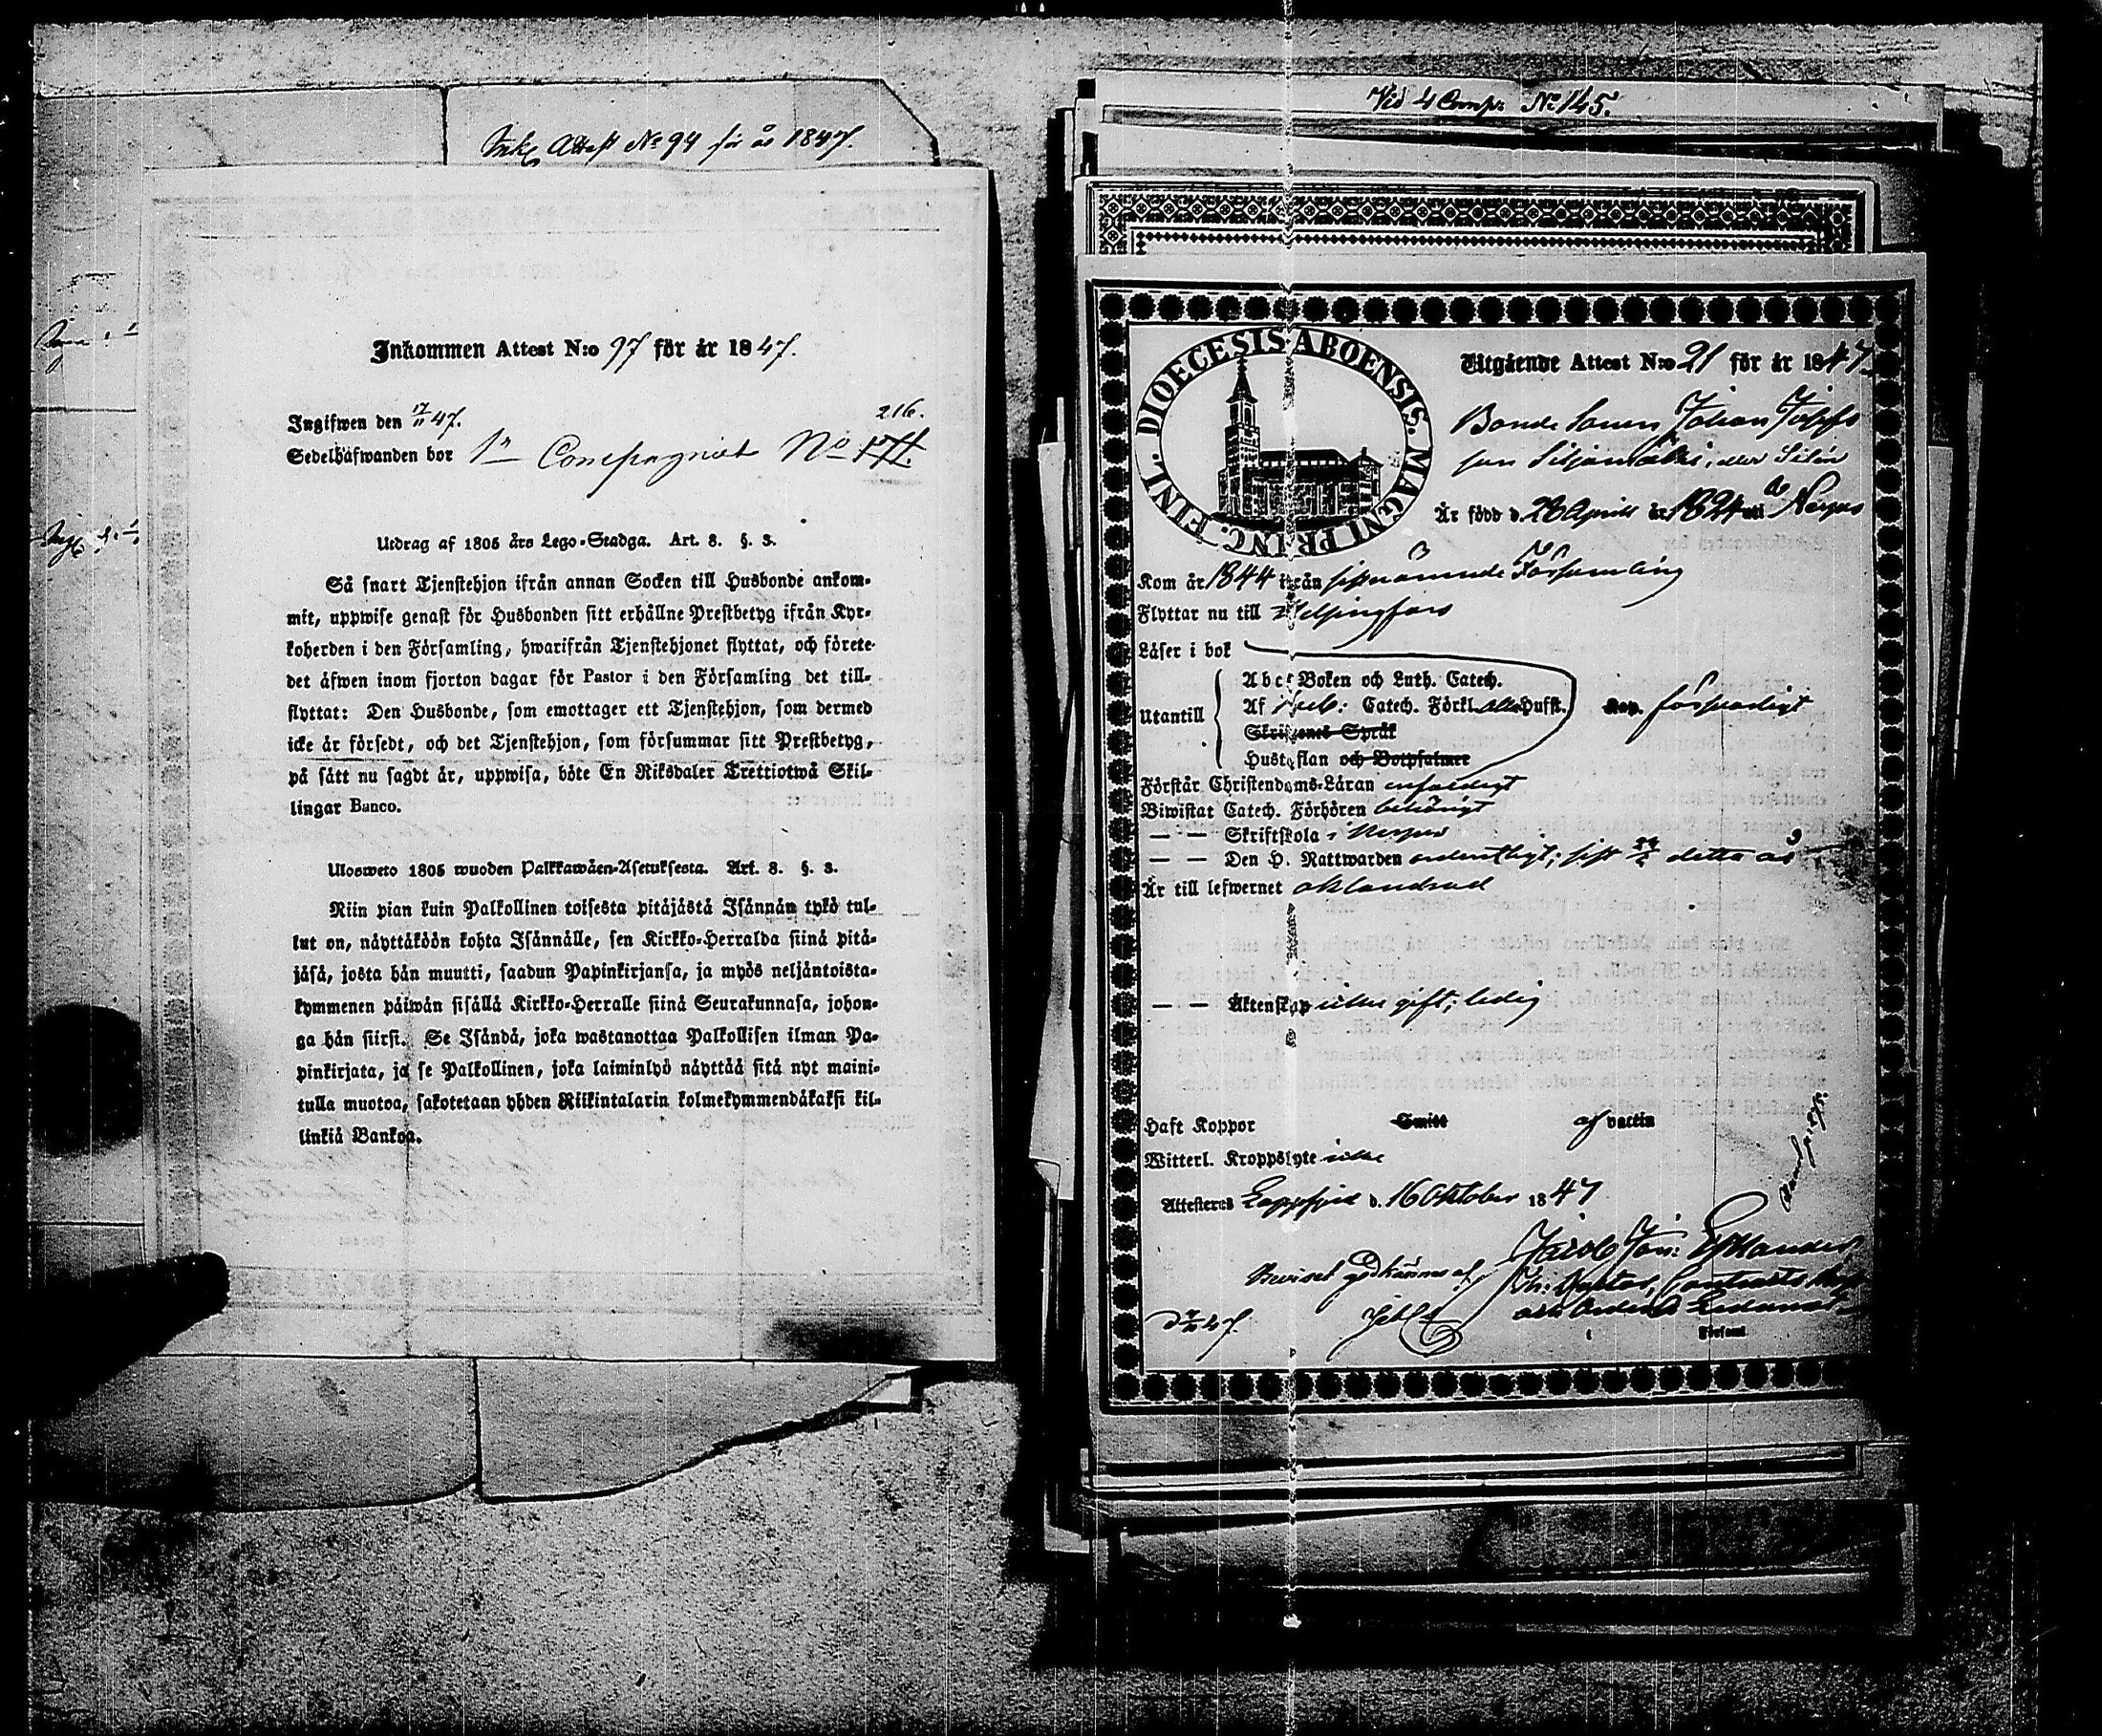 Ink. Attest No 94 för år 1847.
Inkommen Attest N:o 97 för år 1847.
Ingifwen den 17/11 47.
216.
Sedelhafwanden bor 1n Compagniet No
Utdrag af 1805 års Lego-Stadga. Art. 8. §. 3.
Så snart Tjenstehjon ifrån annan Socken till Husbonde ankom-
mit, uppwise genast för Husbonden sitt erhållne Prestbetyg ifrån Kyr-
koherden i den Församling, hwarifrån Tjenstehjonet flyttat, och förete
det äfwen inom fjorton dagar för Pastor i den Församling det till-
flyttat: Den Husbonde, som emottager ett Tjenstehjon, som dermed
icke är försedt, och det Tjenstehjon, som försummar sitt Prestbetyg,
på sätt nu sagdt är, uppwisa, böte En Riksdaler Trettiotwå Skil-
lingar Banco.
Ulosweto 1805 wuoden Palkkawäen-Asetuksesta. Art. 8. §. 3.
Niin pian kuin Palkollinen toisesta pitäjästä Isännän tykö tul-
lut on, näyttäköön kohta Isännälle, sen Kirkko-Herralda siinä pitä-
jäsä, josta hän muutti, saadun Papinkirjansa, ja myös neljäntoista-
kymmenen päiwän sisällä Kirkko-Herralle siinä Seurakunnasa, johon-
ga hän siirsi. Se Isändä, joka wastanottaa Palkollisen ilman Pa-
pinkirjata, ja se Palkollinen, joka laiminlyö näyttää sitä nyt maini-
tulla muotoa, sakotetaan yhden Riikintalarin kolmekymmendäkaksi kil-
linkiä Bankoa.
Vid 4 Comp. No 145.
DIOECESIS ABOENSIS. MAGNI PRINC. FINL.
Utgående Attest N:o 21 för år 1847.
Bonde Sonen Johan Josefs
son Siljamäki, eller Silén
Är född d. 28 Aprill år 1824 uti Nerpes
Kom år 1844 ifrån sistnämnde Församling
Flyttar nu till Helsingfors
Läser i bok
Abc-Boken och Luth. Catech.
Utantill Af Catech. Förkl. Hufst. försvarligt
Skriftenes Språk
Hustaflan och Botpsalmer
Förstår Christendoms-Läran enfaldigt
Biwistat Catech. Förhören behörigt
— — Skriftskola i Nerpes
— — Den H. Nattwarden ordentligt; sist detta år
Är till lefwernet oklandrad
— — Äktenskap icke gift; ledig
Haft Koppor Smitt af vaccin
Witterl. Kroppslyte icke
Attesteras Lappfjerd d. 16 Oktober 1847
Beviset godkännes af
Församl.